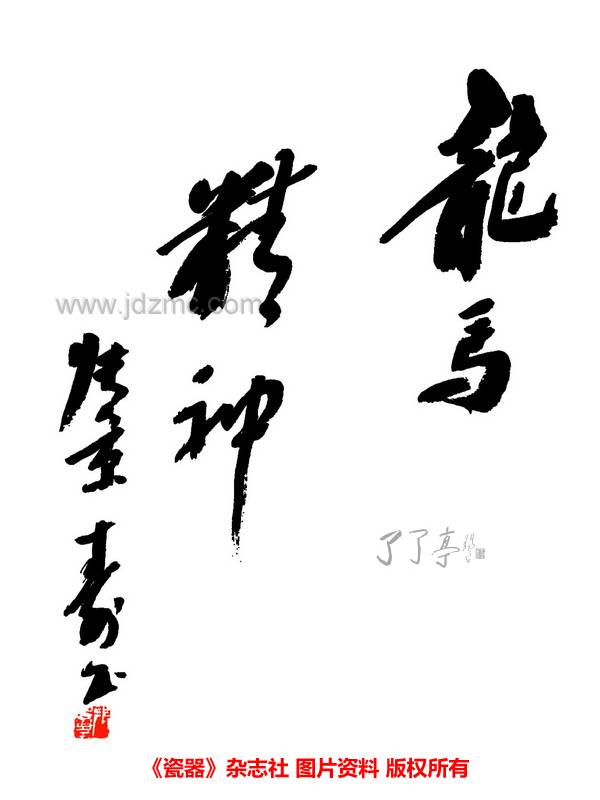 龍马
精神
张景寿书
www.jdzmc.com
了了亭
《瓷器》杂志社 图片资料 版权所有